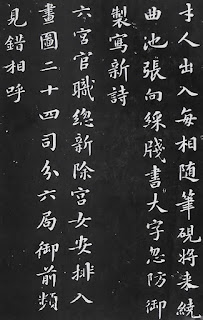 才人出入每相随筆硯将来繞
曲池張向綵牋書大字忽防御
製寫新詩
六宮官職總新除宮女安排入
畫圖二十四司分六局御前頻
見錯相呼